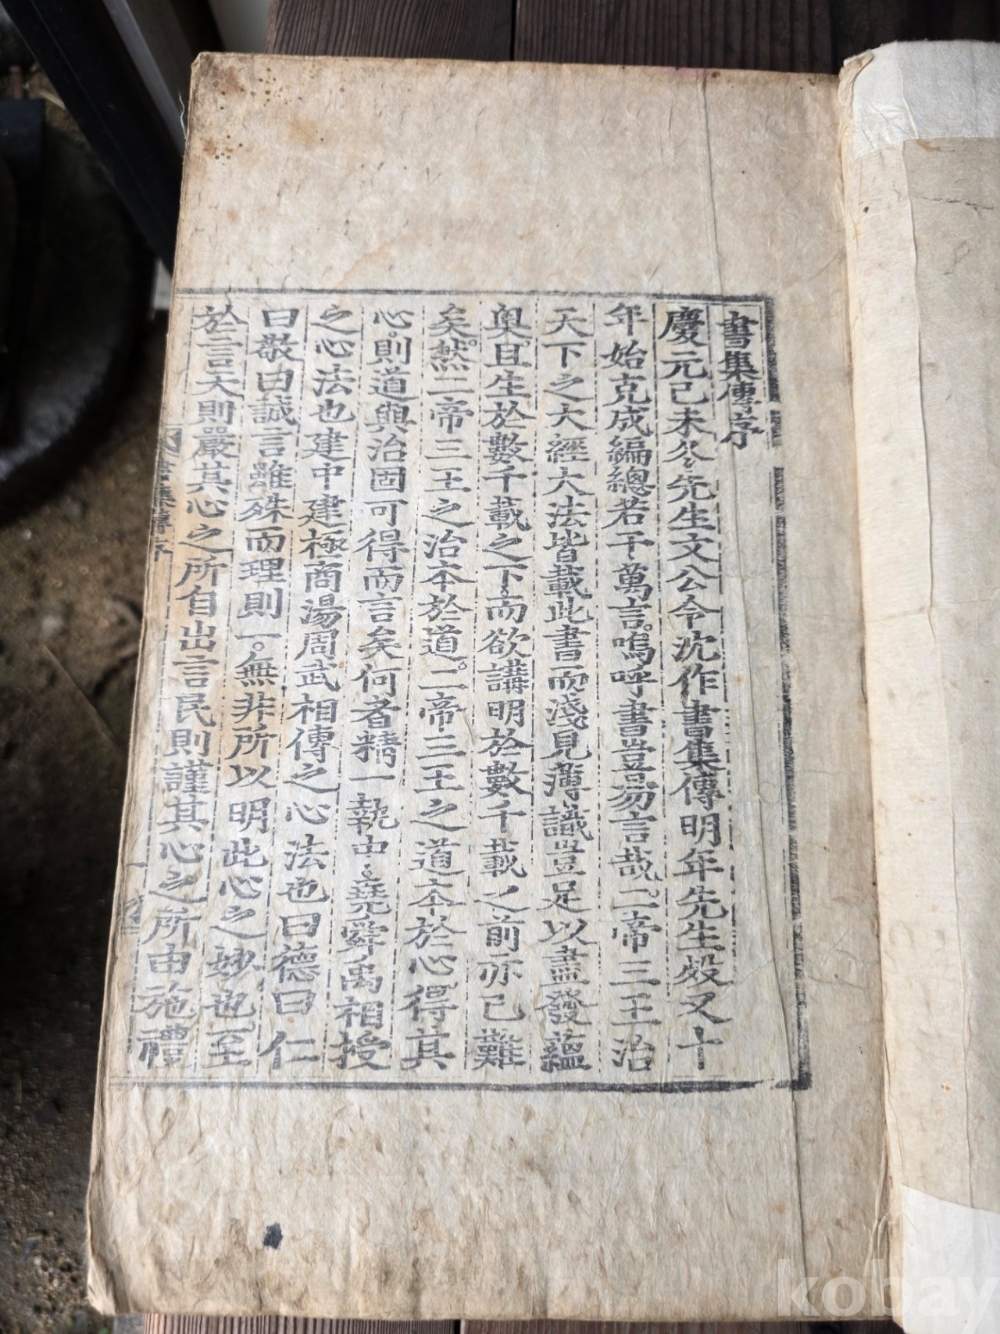 書集傳序
慶元己未冬先生文公令沈作書集傳明年先生歿又十
年始克成編總若干萬言嗚呼書豈易言哉二帝三王治
天下之大經大法皆載此書而淺見薄識豈足以盡發蘊
奧且生於數千載之下而欲講明於數千載之前亦已難
矣然二帝三王之治本於道二帝三王之道本於心得其
心則道與治固可得而言矣何者精一執中堯舜禹相授
之心法也建中建極商湯周武相傳之心法也曰德曰仁
曰敬曰誠言雖殊而理則一無非所以明此心之妙也至
於言天則嚴其心之所自出言民則謹其心之所由施禮
kobay